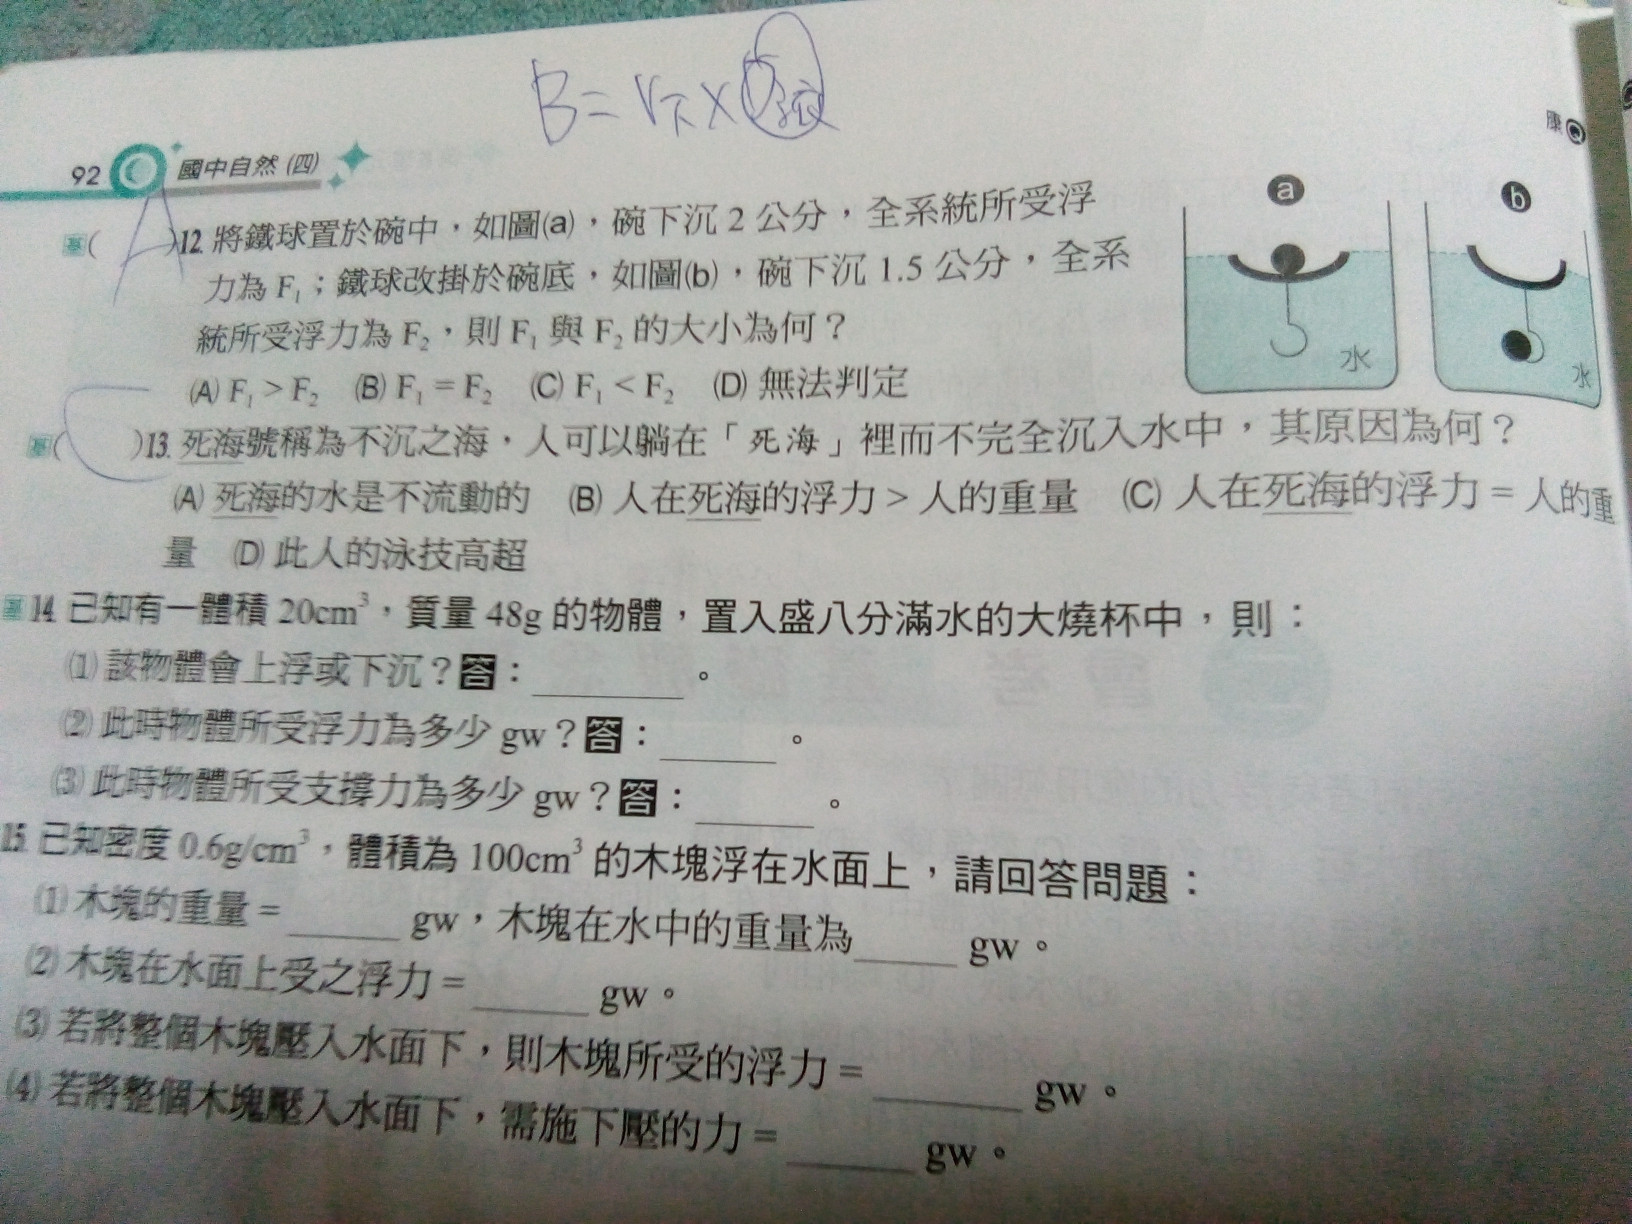 B = V下 × D液
92 國中自然 (四)
康
a
b
基( A )12. 將鐵球置於碗中，如圖(a)，碗下沉 2 公分，全系統所受浮
力為 F₁；鐵球改掛於碗底，如圖(b)，碗下沉 1.5 公分，全系
統所受浮力為 F₂，則 F₁ 與 F₂ 的大小為何？
(A) F₁ > F₂ (B) F₁ = F₂ (C) F₁ < F₂ (D) 無法判定
水
水
基( C )13. 死海號稱為不沉之海，人可以躺在「死海」裡而不完全沉入水中，其原因為何？
(A) 死海的水是不流動的 (B) 人在死海的浮力 > 人的重量 (C) 人在死海的浮力 = 人的重
量 (D) 此人的泳技高超
基14. 已知有一體積 20cm³，質量 48g 的物體，置入盛八分滿水的大燒杯中，則：
(1) 該物體會上浮或下沉？答：＿＿＿＿。
(2) 此時物體所受浮力為多少 gw？答：＿＿＿＿。
(3) 此時物體所受支撐力為多少 gw？答：＿＿＿＿。
15. 已知密度 0.6g/cm³，體積為 100cm³ 的木塊浮在水面上，請回答問題：
(1) 木塊的重量 = ＿＿＿＿ gw，木塊在水中的重量為＿＿＿＿ gw。
(2) 木塊在水面上受之浮力 = ＿＿＿＿ gw。
(3) 若將整個木塊壓入水面下，則木塊所受的浮力 = ＿＿＿＿ gw。
(4) 若將整個木塊壓入水面下，需施下壓的力 = ＿＿＿＿ gw。